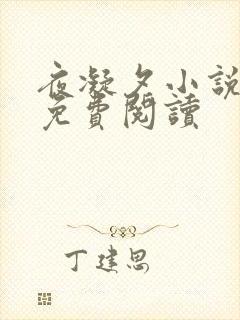 夜凝夕小說
免費閱讀
丁建思